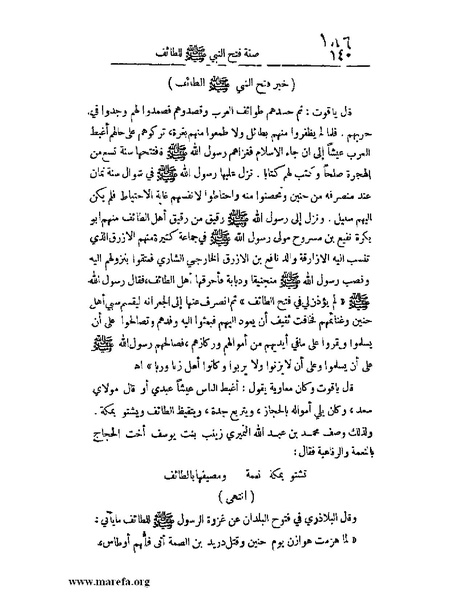 ١٨٦
١٤٠
صفة فتح النبي ﷺ للطائف
( خبر فتح النبي ﷺ الطائف )
قال ياقوت : ثم حسدهم طوائف العرب وقصدوهم فصمدوا لهم وجدوا في
حربهم . فلما لم يظفروا منهم بطائل ولا طمعوا منهم بغرة، تركوهم على حالهم أغبط
العرب عيشاً إلى ان جاء الاسلام فغزاهم رسول الله ﷺ ففتحها سنة تسع من
الهجرة صلحاً وكتب لهم كتابا . نزل عليها رسول الله ﷺ في شوال سنة ثمان
عند منصرفه من حنين وتحصنوا منه واحتاطوا لانفسهم غاية الاحتياط فلم يكن
اليهم سبيل . ونزل إلى رسول الله ﷺ رقيق من رقيق أهل الطائف منهم ابو
بكرة نفيع بن مسروح مولى رسول الله ﷺ في جماعة كثيرة منهم الازرق الذي
تنسب اليه الازارقة والد نافع بن الازرق الخارجي الشاري فعتقوا بنزولهم اليه
ونصب رسول الله ﷺ منجنيقا ودبابة فأحرقها أهل الطائف، فقال رسول الله
ﷺ « لم يؤذن لي في فتح الطائف » ثم انصرف عنها إلى الجعرانة ليقسم سبي أهل
حنين وغنائمهم فخافت ثقيف أن يعود اليهم فبعثوا اليه وفدهم وتصالحوا على أن
يسلموا ويقروا على مافي أيديهم من أموالهم وركازهم، فصالحهم رسول الله ﷺ
على أن يسلموا وعلى أن لا يزنوا ولا يربوا وكانوا أهل زنا وربا » اهـ
قال ياقوت وكان معاوية يقول : أغبط الناس عيشاً عبدي أو قال مولاي
سعد ، وكان يلي أمواله بالحجاز ، ويتربع جدة ، ويتقيظ الطائف ويشتو بمكة .
ولذلك وصف محمد بن عبد الله النميري زينب بنت يوسف أخت الحجاج
بالنعمة والرفاهية فقال :
تشتو بمكة نعمة ومصيفها بالطائف
( انتهى )
وقال البلاذري في فتوح البلدان عن غزوة الرسول ﷺ للطائف مايأتي :
« لما هزمت هوازن يوم حنين وقتل دريد بن الصمة أتى فلهم أوطاس،
www.marefa.org